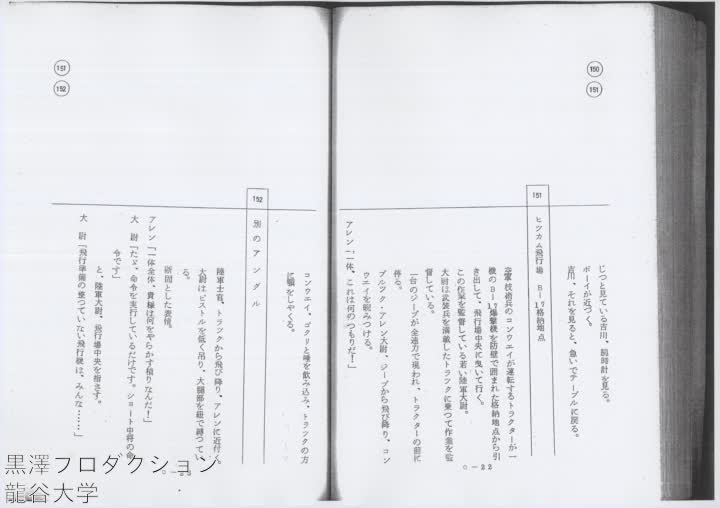 150
151
じつと見ている吉川、腕時計を見る。
ボーイが近づく。
吉川、それを見ると、急いでテーブルに戻る。
151
ヒツカム飛行場 B―17格納地点
空軍技術兵のコンウエイが運転するトラクターが一
機のB―17爆撃機を防壁で囲まれた格納地点から引
き出して、飛行場中央に曳いて行く。
この作業を監督している若い陸軍大尉。
大尉は武装兵を満載したトラツクに乗つて作業を監
督している。
一台のジープが全速力で現われ、トラクターの前に
停る。
ブルツク・アレン大尉、ジープから飛び降り、コン
ウエイを睨みつける。
アレン「一体、これは何のつもりだ!」
○―22
151
152
コンウエイ、ゴクリと唾を飲み込み、トラツクの方
に顎をしやくる。
152
別のアングル
陸軍士官、トラツクから飛び降り、アレンに近付く。
大尉はピストルを低く吊り、大腿部を紐で縛つてい
る。
断固とした表情。
アレン「一体全体、貴様は何をやらかす積りなんだ!」
大 尉「たゞ、命令を実行しているだけです。ショート中将の命
令です」
と、陸軍大尉、飛行場中央を指さす。
大 尉「飛行準備の整つていない飛行機は、みんな……」
黒澤プロダクション
龍谷大学